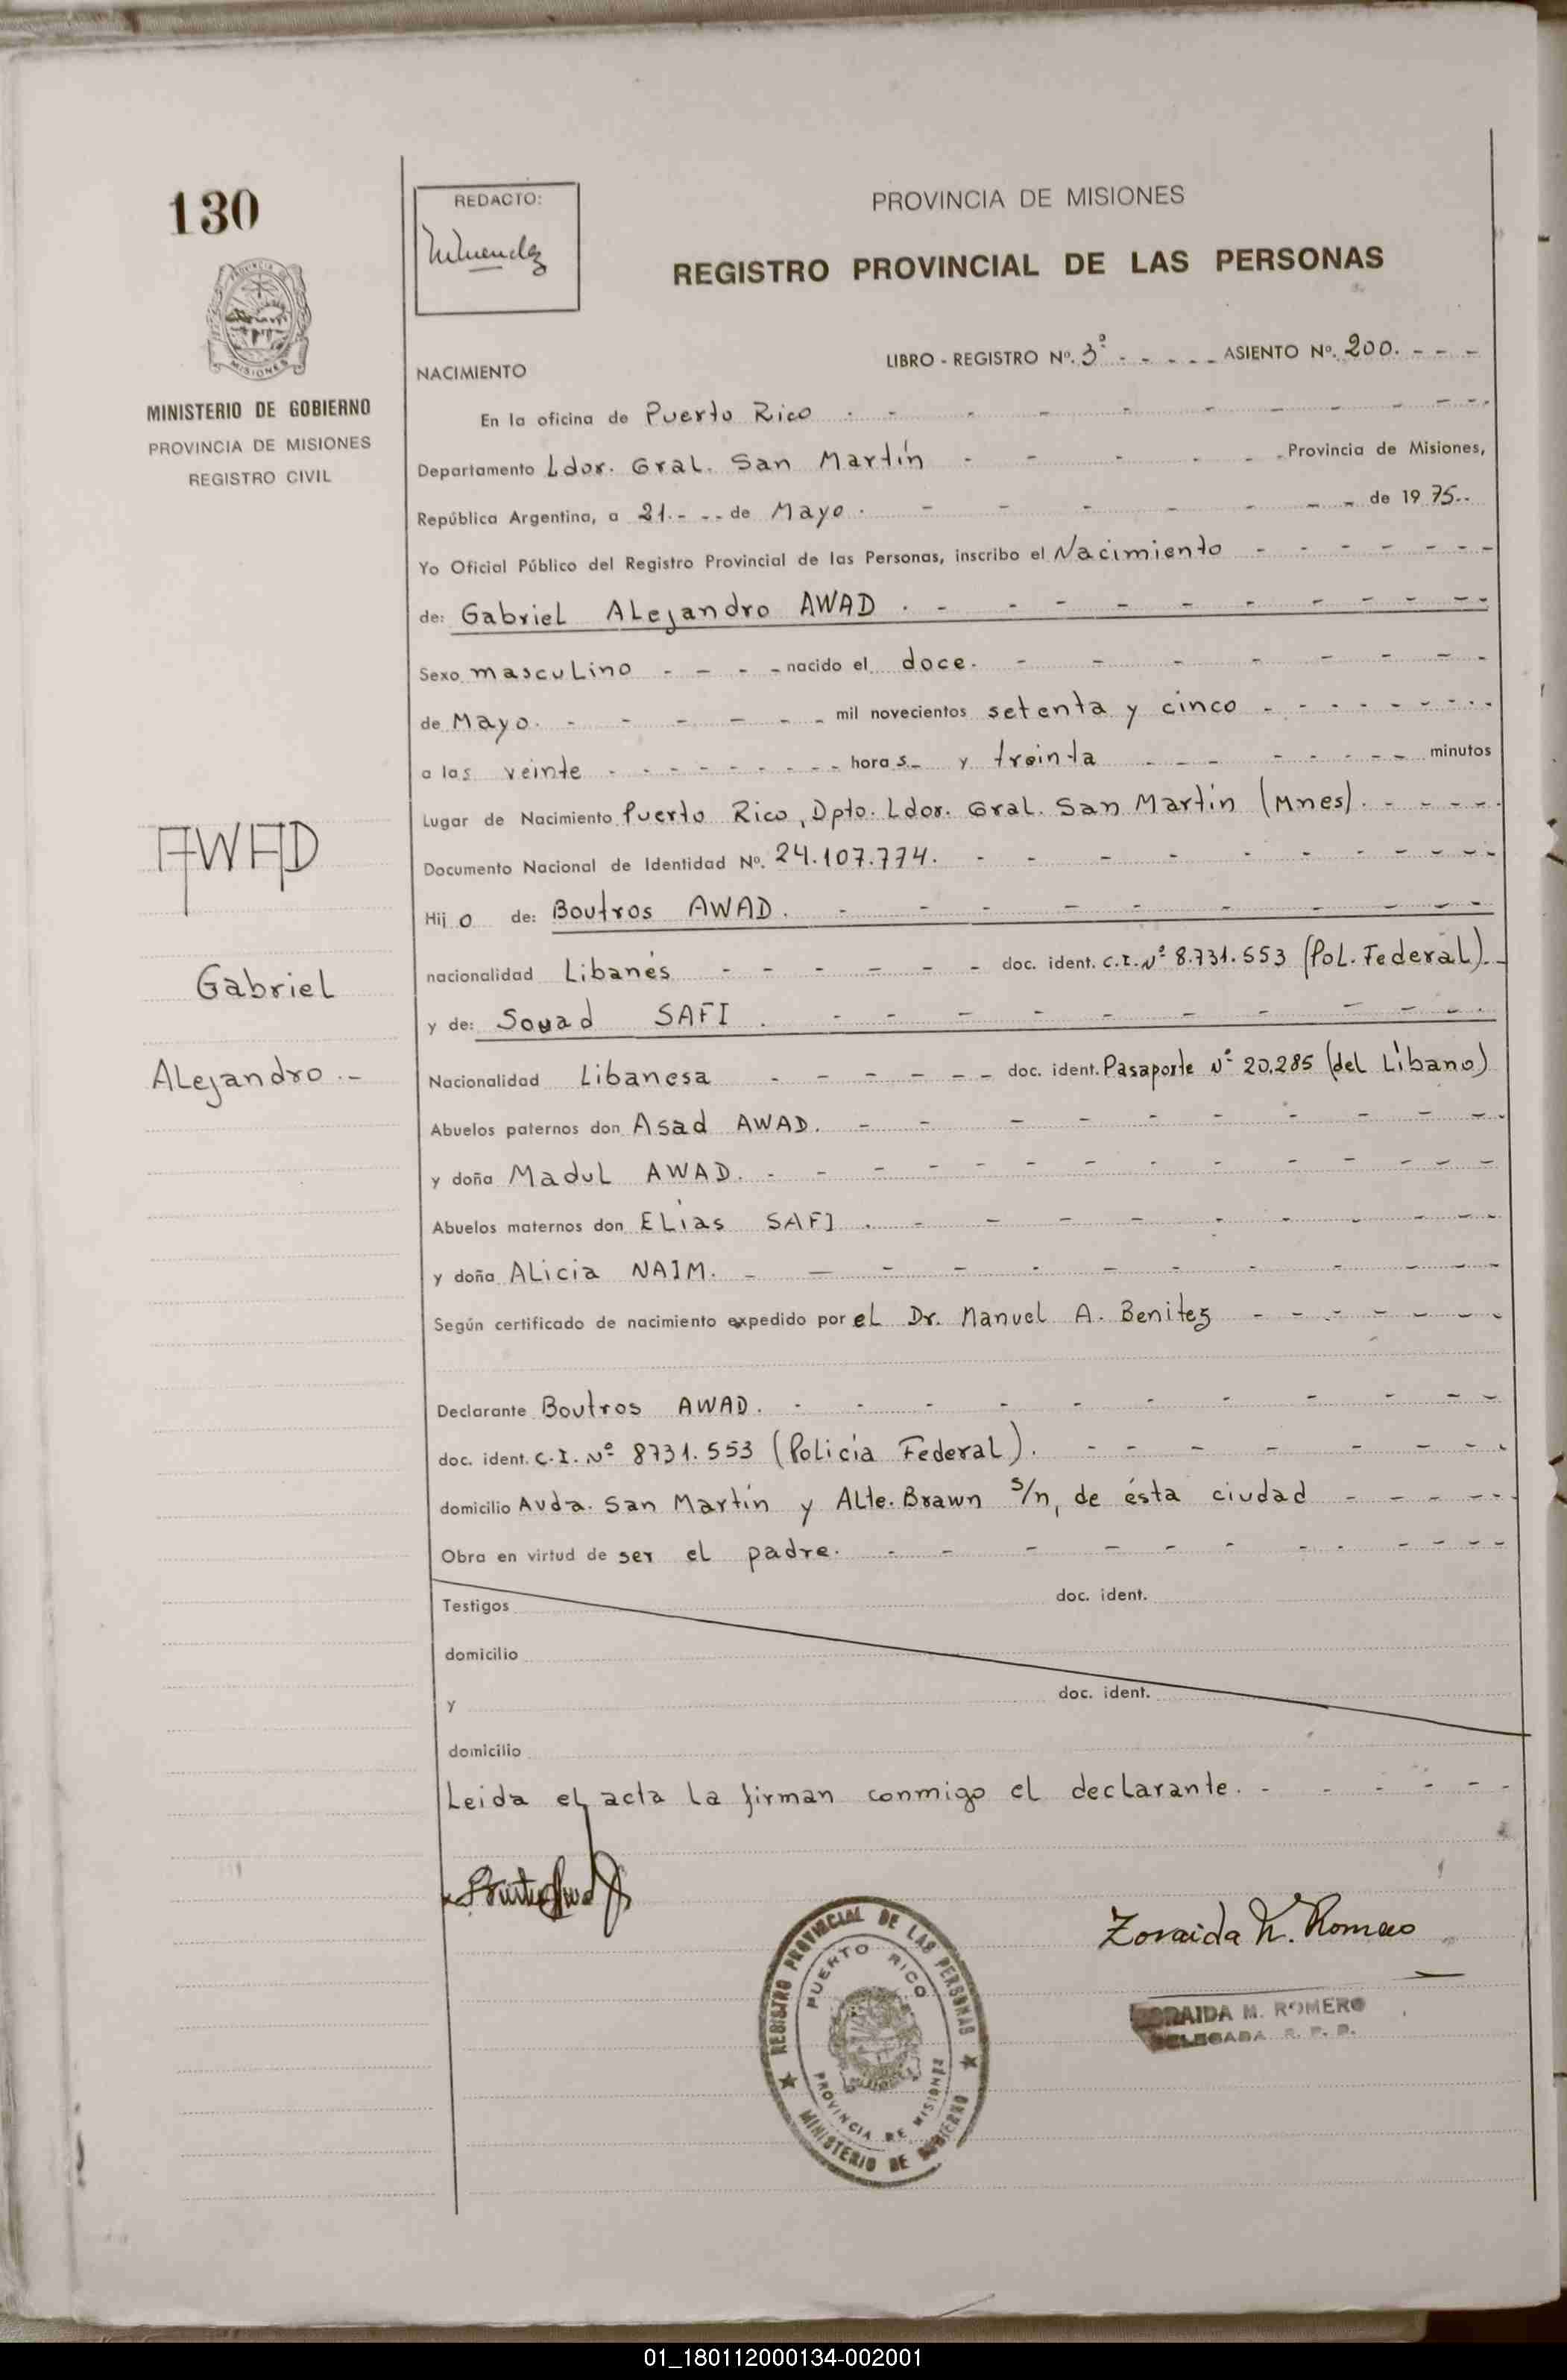 130
REDACTO:
PROVINCIA DE MISIONES
REGISTRO PROVINCIAL DE LAS PERSONAS
MINISTERIO DE GOBIERNO
PROVINCIA DE MISIONES
REGISTRO CIVIL
AWAD
Gabriel
Alejandro.-
NACIMIENTO
LIBRO - REGISTRO Nº. 3º - - - - ASIENTO Nº. 200. - - -
En la oficina de Puerto Rico
Departamento Ldor. Gral. San Martín - - - - - Provincia de Misiones,
República Argentina, a 21.- - - de Mayo. - - - - - - - de 19 75..
Yo Oficial Público del Registro Provincial de las Personas, inscribo el Nacimiento
de: Gabriel Alejandro AWAD.
Sexo masculino - - - - nacido el doce.
de Mayo. - - - - - - mil novecientos setenta y cinco
a las veinte - - - - - - - - hora s - y treinta - - - - - - - minutos
Lugar de Nacimiento Puerto Rico, Dpto. Ldor. Gral. San Martín (Mnes).
Documento Nacional de Identidad Nº. 24.107.774.
Hij o de: Boutros AWAD.
nacionalidad Libanés - - - - - - doc. ident. C.I. Nº 8.731.553 (Pol. Federal).
y de: Souad SAFI.
Nacionalidad Libanesa - - - - - - doc. ident. Pasaporte Nº 20.285 (del Líbano)
Abuelos paternos don Asad AWAD.
y doña Madul AWAD.
Abuelos maternos don Elías SAFI.
y doña Alicia NAIM.
Según certificado de nacimiento expedido por el Dr. Manuel A. Benitez
Declarante Boutros AWAD.
doc. ident. C.I. Nº 8731.553 (Policía Federal).
domicilio Avda. San Martín y Alte. Brawn s/n, de ésta ciudad
Obra en virtud de ser el padre.
Testigos doc. ident.
domicilio
y doc. ident.
domicilio
Leida el acta la firman conmigo el declarante.
Zoraida M. Romero
REGISTRO PROVINCIAL DE LAS PERSONAS
PUERTO RICO
PROVINCIA DE MISIONES
MINISTERIO DE GOBIERNO
ZORAIDA M. ROMERO
01_180112000134-002001